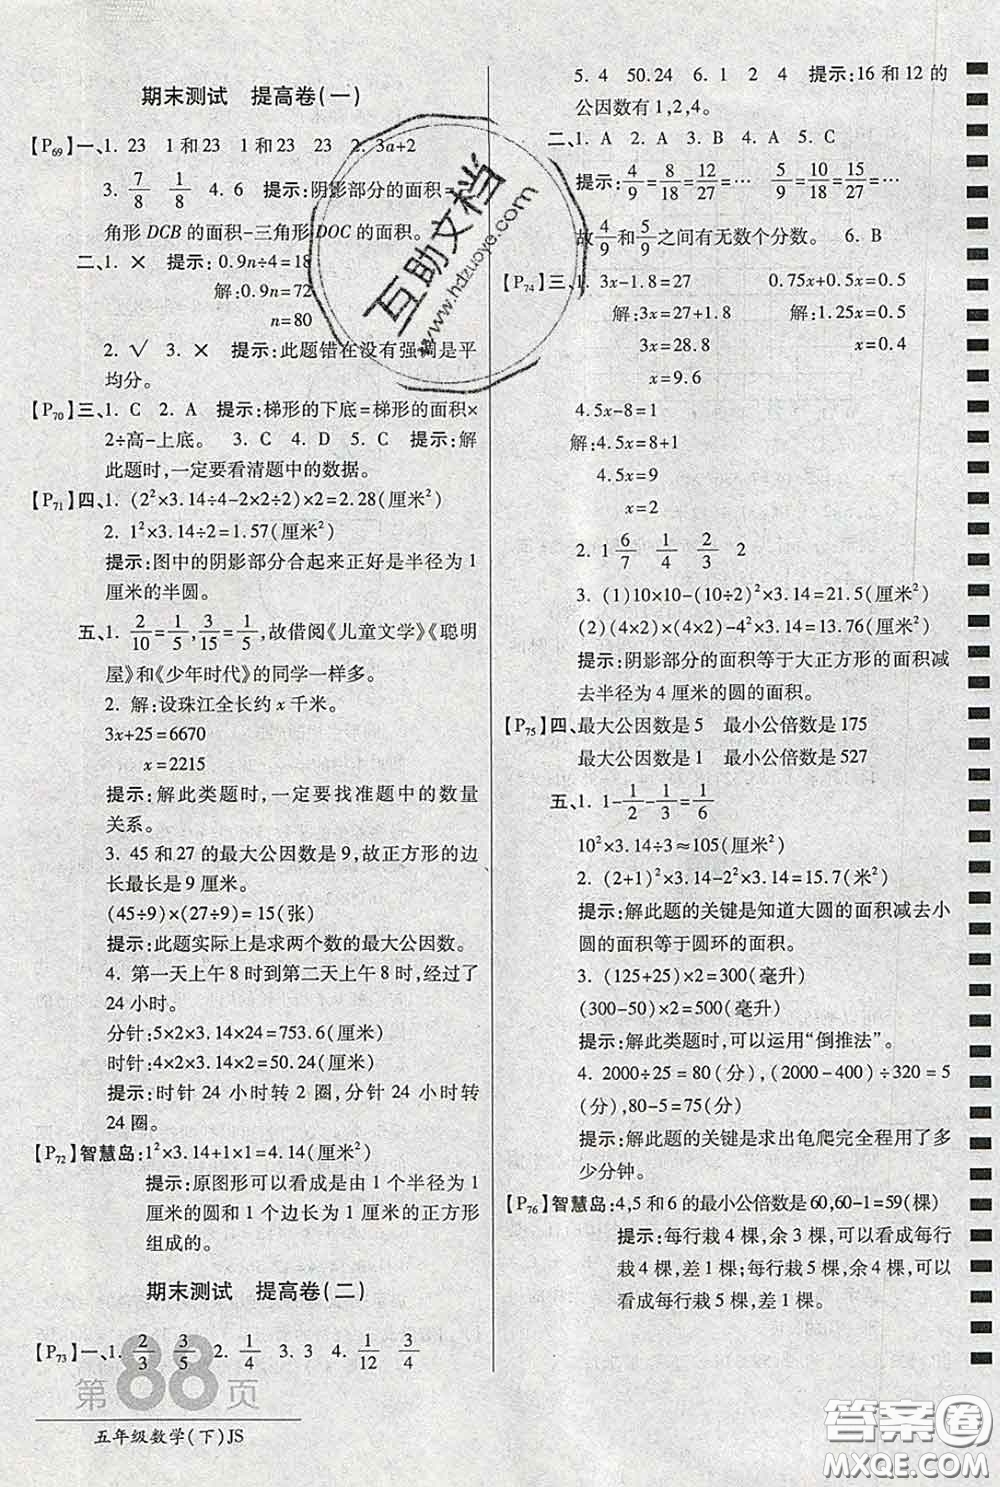 期末测试　提高卷(一)
【P69】一、1. 23　1 和 23　1 和 23　23　2. 3a+2
3. 7/8　1/8　4. 6　提示:阴影部分的面积=
角形 DCB 的面积-三角形 DOC 的面积。
二、1. ×　提示:0.9n÷4=18
解:0.9n=72
n=80
2. √　3. ×　提示:此题错在没有强调是平
均分。
【P70】三、1. C　2. A　提示:梯形的下底=梯形的面积×
2÷高-上底。　3. C　4. D　5. C　提示:解
此题时,一定要看清题中的数据。
【P71】四、1. (2²×3.14÷4-2×2÷2)×2=2.28(厘米²)
2. 1²×3.14÷2=1.57(厘米²)
提示:图中的阴影部分合起来正好是半径为 1
厘米的半圆。
五、1. 2/10=1/5,3/15=1/5,故借阅《儿童文学》《聪明
屋》和《少年时代》的同学一样多。
2. 解:设珠江全长约 x 千米。
3x+25=6670
x=2215
提示:解此类题时,一定要找准题中的数量
关系。
3. 45 和 27 的最大公因数是 9,故正方形的边
长最长是 9 厘米。
(45÷9)×(27÷9)=15(张)
提示:此题实际上是求两个数的最大公因数。
4. 第一天上午 8 时到第二天上午 8 时,经过了
24 小时。
分针:5×2×3.14×24=753.6(厘米)
时针:4×2×3.14×2=50.24(厘米)
提示:时针 24 小时转 2 圈,分针 24 小时转
24 圈。
【P72】智慧岛:1²×3.14+1×1=4.14(厘米²)
提示:原图形可以看成是由一个半径为 1
厘米的圆和 1 个边长为 1 厘米的正方形
组成的。
期末测试　提高卷(二)
【P73】一、1. 2/3　3/5　2. 1/4　3. 3　4. 1/12　3/4
第88页
五年级数学(下)JS
5. 4　50.24　6. 1　2　4　提示:16 和 12 的
公因数有 1,2,4。
二、1. A　2. A　3. B　4. A　5. C
提示:4/9=8/18=12/27=…　5/9=10/18=15/27=…
故4/9和5/9之间有无数个分数。　6. B
【P74】三、1. 3x-1.8=27　0.75x+0.5x=0.5
解:3x=27+1.8　解:1.25x=0.5
3x=28.8　x=0.4
x=9.6
4.5x-8=1
解:4.5x=8+1
4.5x=9
x=2
2. 1 6/7　1/4　2/3　2
3. (1)10×10-(10÷2)²×3.14=21.5(厘米²)
(2)(4×2)×(4×2)-4²×3.14=13.76(厘米²)
提示:阴影部分的面积等于大正方形的面积减
去半径为 4 厘米的圆的面积。
【P75】四、最大公因数是 5　最小公倍数是 175
最大公因数是 1　最小公倍数是 527
五、1. 1-1/2-1/3=1/6
10²×3.14÷3≈105(厘米²)
2. (2+1)²×3.14-2²×3.14=15.7(米²)
提示:解此题的关键是知道大圆的面积减去小
圆的面积等于圆环的面积。
3. (125+25)×2=300(毫升)
(300-50)×2=500(毫升)
提示:解此类题时,可以运用“倒推法”。
4. 2000÷25=80(分),(2000-400)÷320=5
(分),80-5=75(分)
提示:解此题的关键是求出龟爬完全程用了多
少分钟。
【P76】智慧岛:4,5 和 6 的最小公倍数是 60,60-1=59(棵)
提示:每行栽 4 棵,余 3 棵,可以看成每行
栽 4 棵,差 1 棵;每行栽 5 棵,余 4 棵,可以
看成每行栽 5 棵,差 1 棵。
互助文档
www.hdzuoye.com
答案卷
MXQE.COM